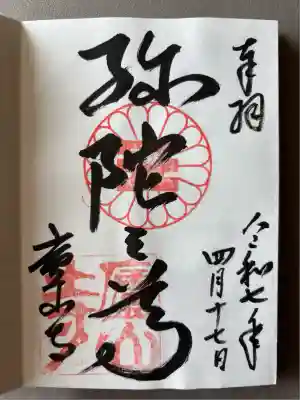 奉拝
令和七年
四月十七日
弥陀三尊